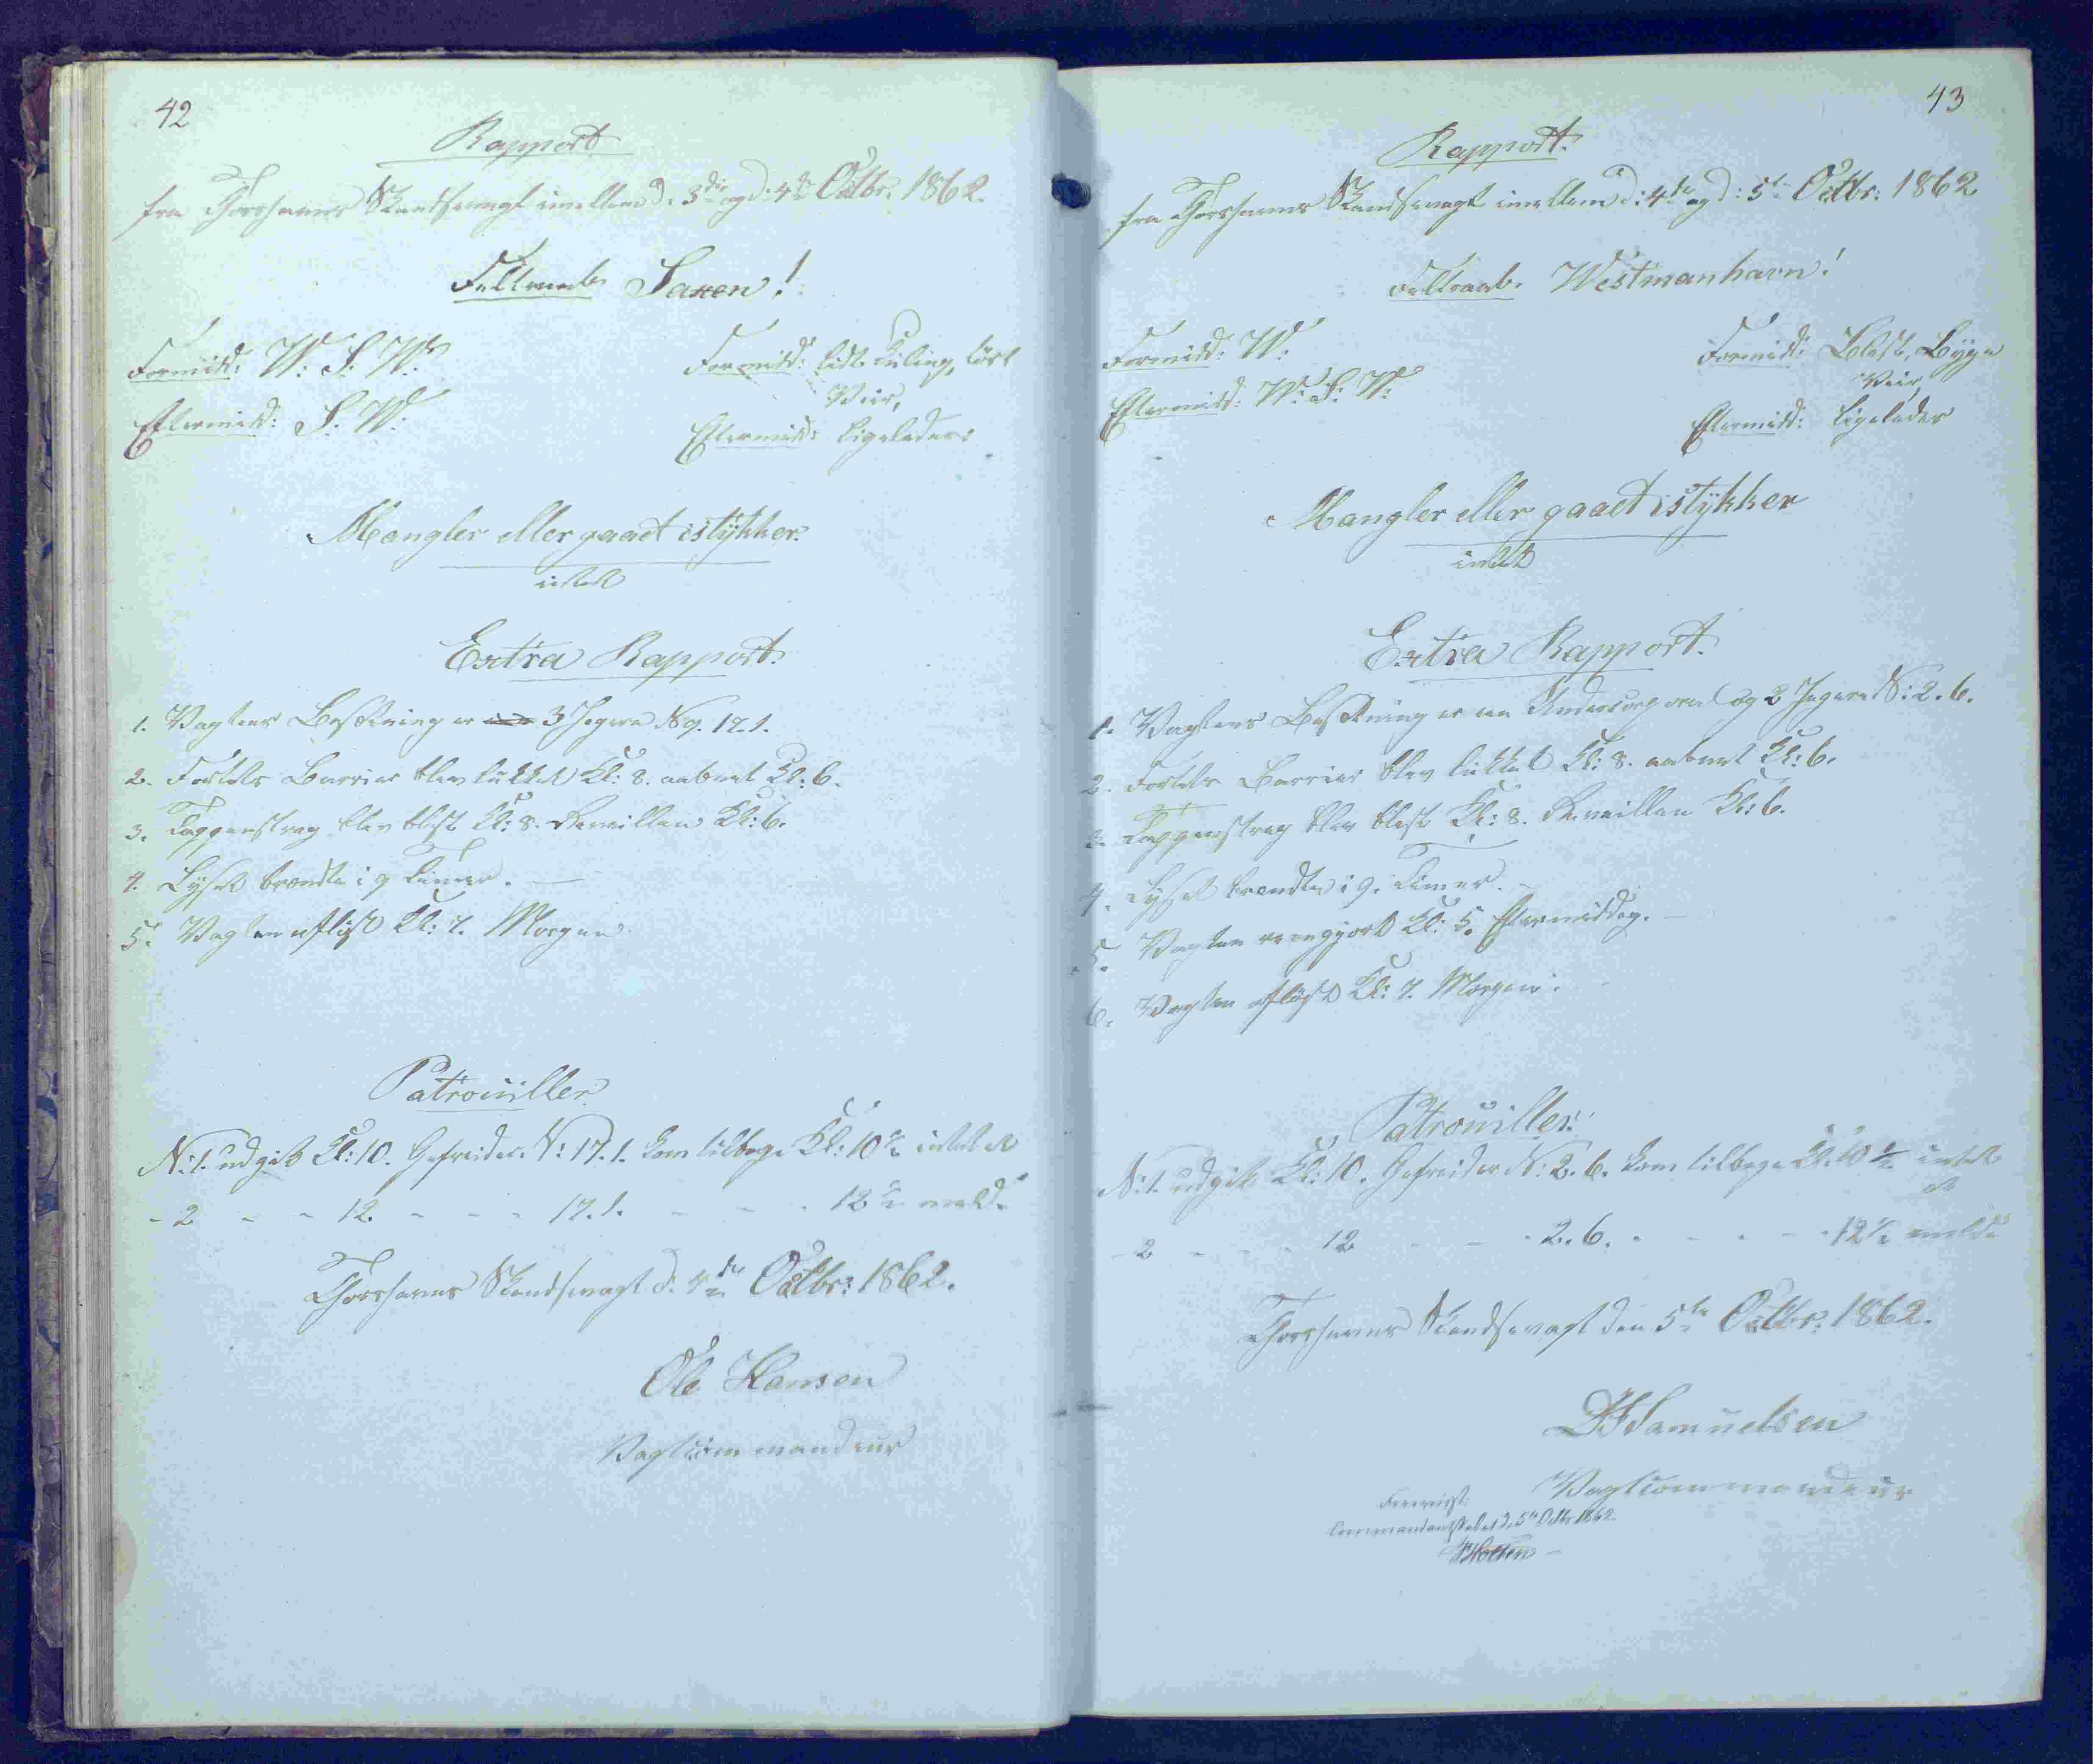 42
Rapport
fra Thorshavns Skandsevagt imellem d. 3die og d: 4de Octbr. 1862.
Feltraab Saxen!
Formidd: W. S. W.
Formidd: lidt Kuling, tört
Veir,
Eftermidd: S. W.
Eftermidd: ligeledes
Mangler eller gaaet istykker.
intet
Extra Rapport.
1. Vagtens Besætning er 3 Jegere No 9. 17. 1.
2. Fortets Barrier blev lukket Kl: 8. aabnet Kl: 6.
3. Tappenstreg blev blæst Kl: 8. Reveillen Kl: 6.
4. Lyset brændte i 9 Timer.
5. Vagten aflöst Kl: 7. Morgen.
Patrouiller
N: 1. udgik Kl: 10. Gefreider N: 17. 1. kom tilbage Kl: 10½ intet at
- 2 - - 12 - - - 17. 1. - - - 12½ meld.
Thorshavns Skandsevagt d. 4de Octbr: 1862.
Ole Hansen
Vagtcommandeur
43
Rapport.
fra Thorshavns Skandsevagt imellem d: 4de og d: 5te Octbr: 1862
Feltraab. Westmanhavn!
Formidd: W.
Formidd: Blæst, Byge
Veir,
Eftermidd: W. S. W.
Eftermidd: ligeledes
Mangler eller gaaet istykker
intet
Extra Rapport.
1. Vagtens Besætning er en Undercorporal og 2 Jegere N: 2. 6.
2. Fortets Barrier blev lukket Kl: 8. aabnet Kl: 6.
3. Tappenstreg blev blæst Kl: 8. Reveillen Kl: 6.
4. Lyset brændte i 9. Timer.
5. Vagten reengjort Kl: 5. Eftermiddag.
6. Vagten aflöst Kl: 7. Morgen.
Patrouiller.
N: 1. udgik Kl: 10. Gefreider N: 2. 6. kom tilbage Kl: 10½ intet
at
- 2 - - - 12 - - - 2. 6. - - - - 12½ melde
Thorshavns Skandsevagt den 5te Octbr: 1862.
Samuelsen
Vagtcommandeur
Foreviist.
Commandantskabet d. 5te Octbr 1862.
Holten